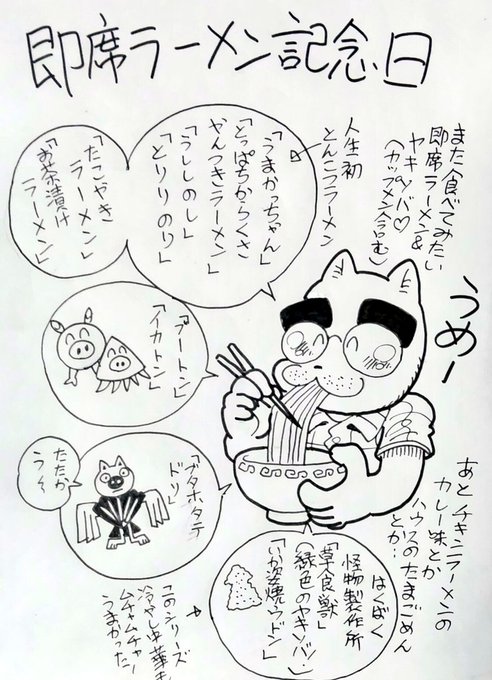 即席ラーメン記念日
また食べてみたい
即席ラーメン&
ヤキソバ♡
(カップメン含む)
うめー
人生初
とんこつラーメン
「うまかっちゃん」
「とっぱちからくさ
やんつきラーメン」
「うししのし」
「とりりのり」
「たこやき
ラーメン」
「お茶漬け
ラーメン」
「ブートン」
「イカトン」
「ブタホタテ
ドリ」
たたか
うぞ
あとチキンラーメンの
カレー味とか
ハウスのたまごめん
とか…
はくばく
怪物製作所
「草食獣」
(緑色のヤキソバ)
「いか姿焼ウドン」
このシリーズ
冷やし中華も
ムチャムチャ
うまかった!